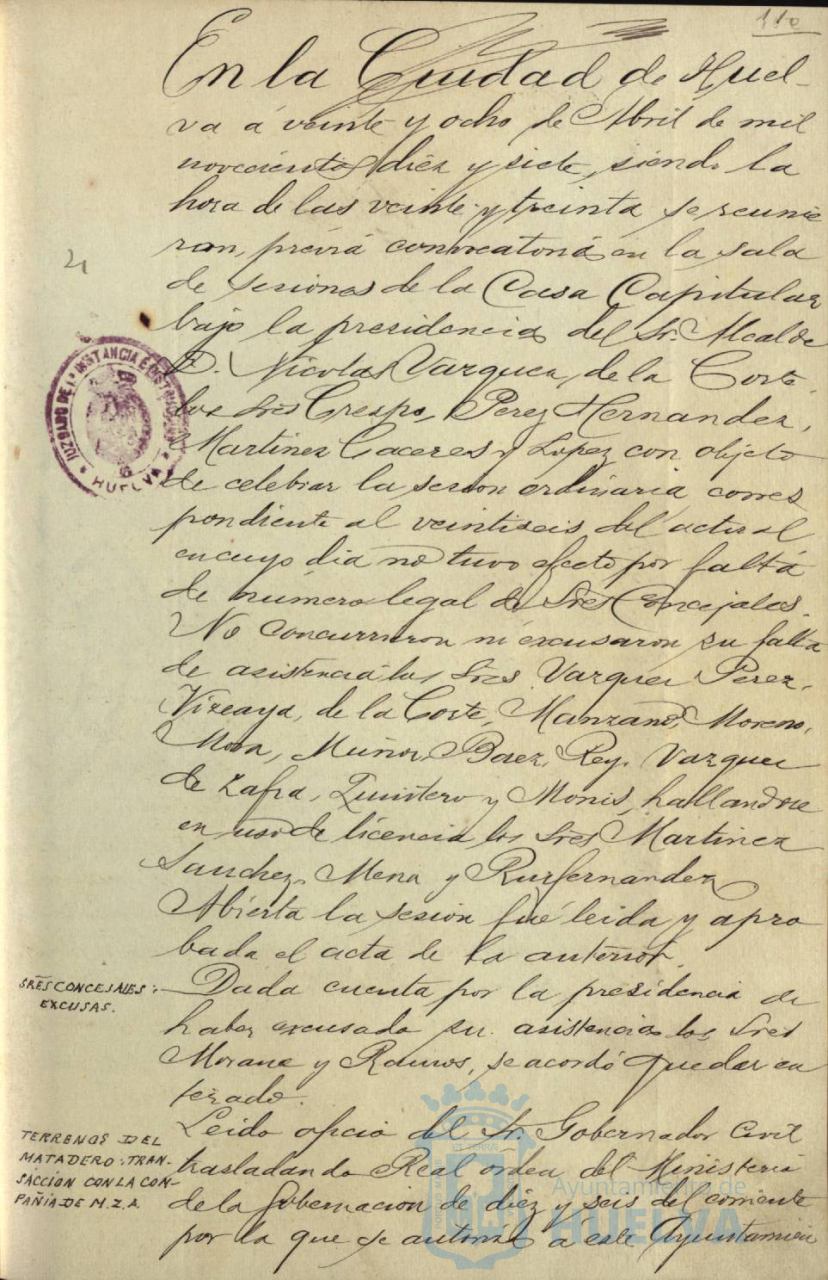 110
En la Ciudad de Huel-
va á veinte y ocho de Abril de mil
novecientos diez y siete, siendo la
hora de las veinte y treinta se reunie
ron, prévia convocatoria en la sala
de sesiones de la Casa Capitular
bajo la presidencia del Sr. Alcalde
D. Nicolas Vazquez, de la Corte
los Srés Crespo, Perez Hernandez,
Martinez Caceres y Lopez con objeto
de celebrar la sesion ordinaria corres
pondiente al veintiseis del actual
en cuyo dia no tuvo efecto por falta
de número legal de Srés Concejales.
No concurrieron ni excusaron su falta
de asistencia los Srés Vazquez Perez,
Vizcaya, de la Corte, Manzano, Moreno,
Mora, Muñoz, Baez, Rey, Vazquez
de Zafra, Quintero y Monis, hallandose
en uso de licencia los Srés Martinez
Sanchez, Mena y Ruifernandez
Abierta la sesion fué leida y apro
bada el acta de la anterior.
SRES CONCEJALES:
EXCUSAS.
Dada cuenta por la presidencia de
haber excusado su asistencia los Srés
y Ramos, se acordó quedar en
terado.
TERRENOS DEL
MATADERO: TRAN-
SACCIÓN CON LA COM-
PAÑIA DE M.Z.A.
Leido oficio del Sr. Gobernador Civil
trasladando Real orden del Ministerio
de la Gobernacion de diez y seis del corriente
por la que se autoriza á este Ayuntamien
JUZGADO DE 1ª INSTANCIA E INSTRUCCION
HUELVA
Ayuntamiento de
HUELVA